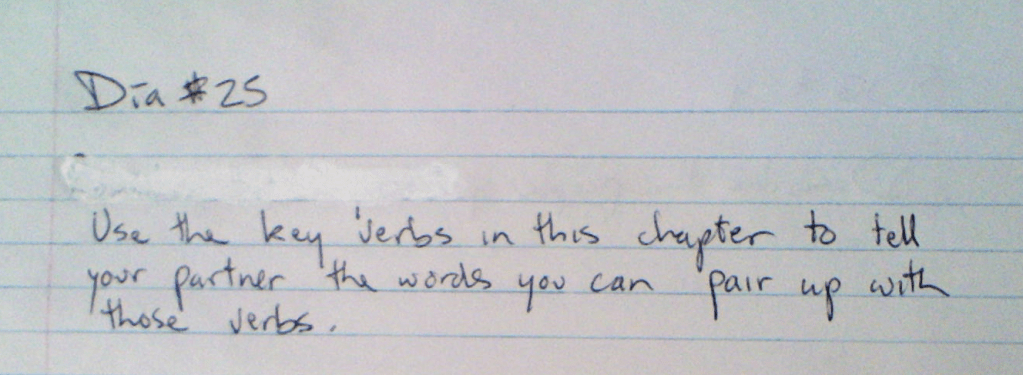 Día #25
Use the key verbs in this chapter to tell
your partner the words you can pair up with
those verbs.